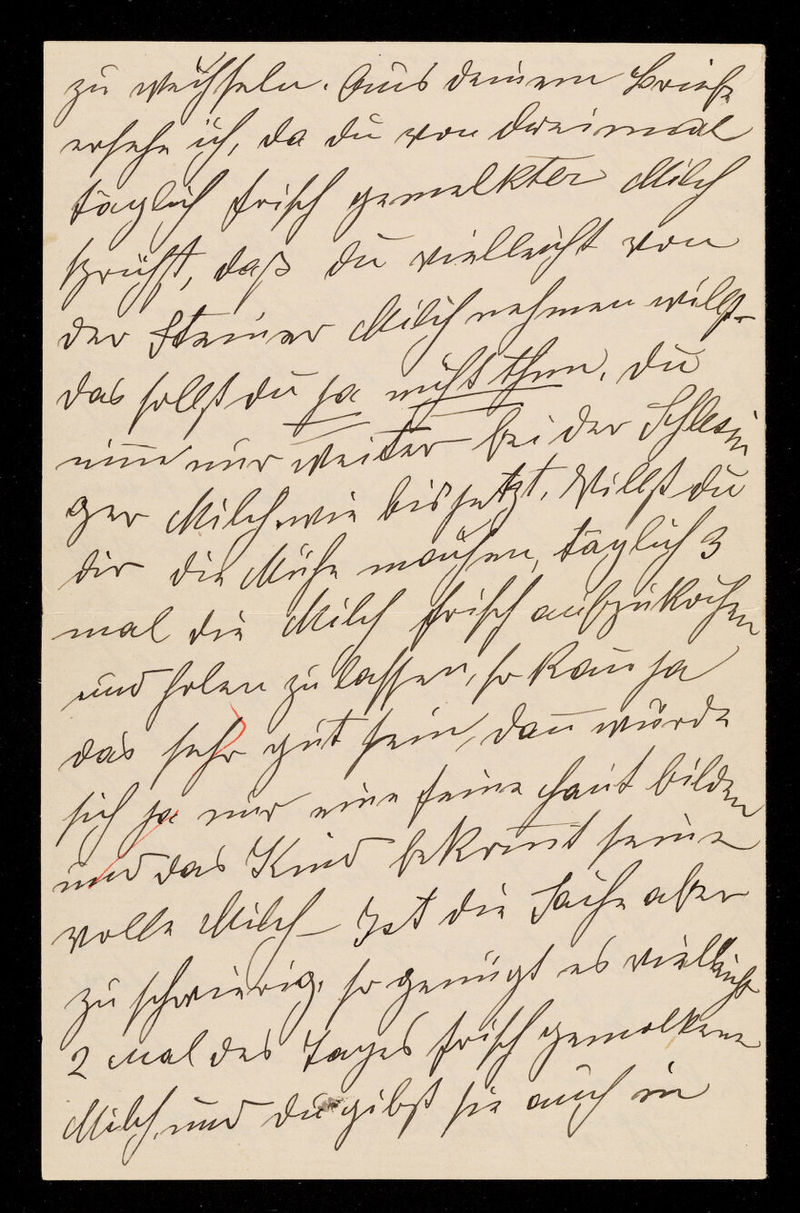 zu wechseln. Aus deinem Briefe
ersehe ich, da du von dreimal
täglich frisch gemelkter Milch
sprichst, daß du vielleicht von
der Steiner Milch nehmen willst –
das sollst du ja nicht thun, du
nim̅ nur weiter bei der Schlesin
ger Milch wie bis jetzt. Willst du
dir die Mühe machen, täglich 3
mal die Milch frisch aufzukochen
und holen zu lassen, so kan̅ ja
das sehr gut sein, dan̅ würde
sich ja nur eine feine Haut bilden
und das Kind bekom̅t seine
volle Milch – Ist die Sache aber
zu schwierig, so genügt es vielleicht
2 mal des Tages frisch gemolkene
Milch, und du gibst sie auch in